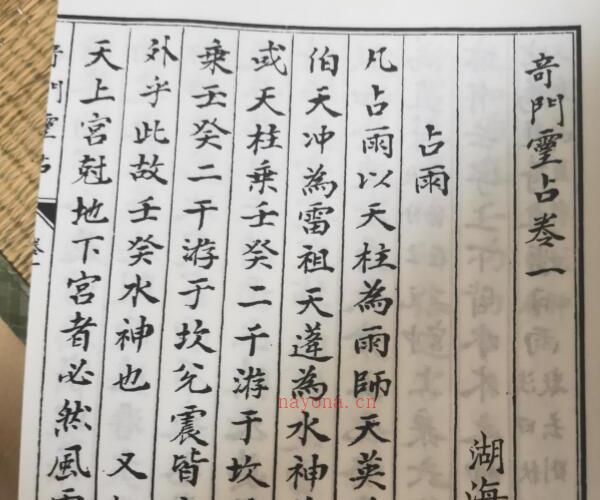 竒門靈占卷一
湖海
占雨
凡占雨以天柱為雨師天英
伯天冲為雷祖天蓬為水神
或天柱乘壬癸二千游于坎
乘壬癸二干游于坎兊震皆
外乎此故壬癸水神也 又
天上宮尅地下宮者必然風
竒門靈占
卷一
nayona.cn